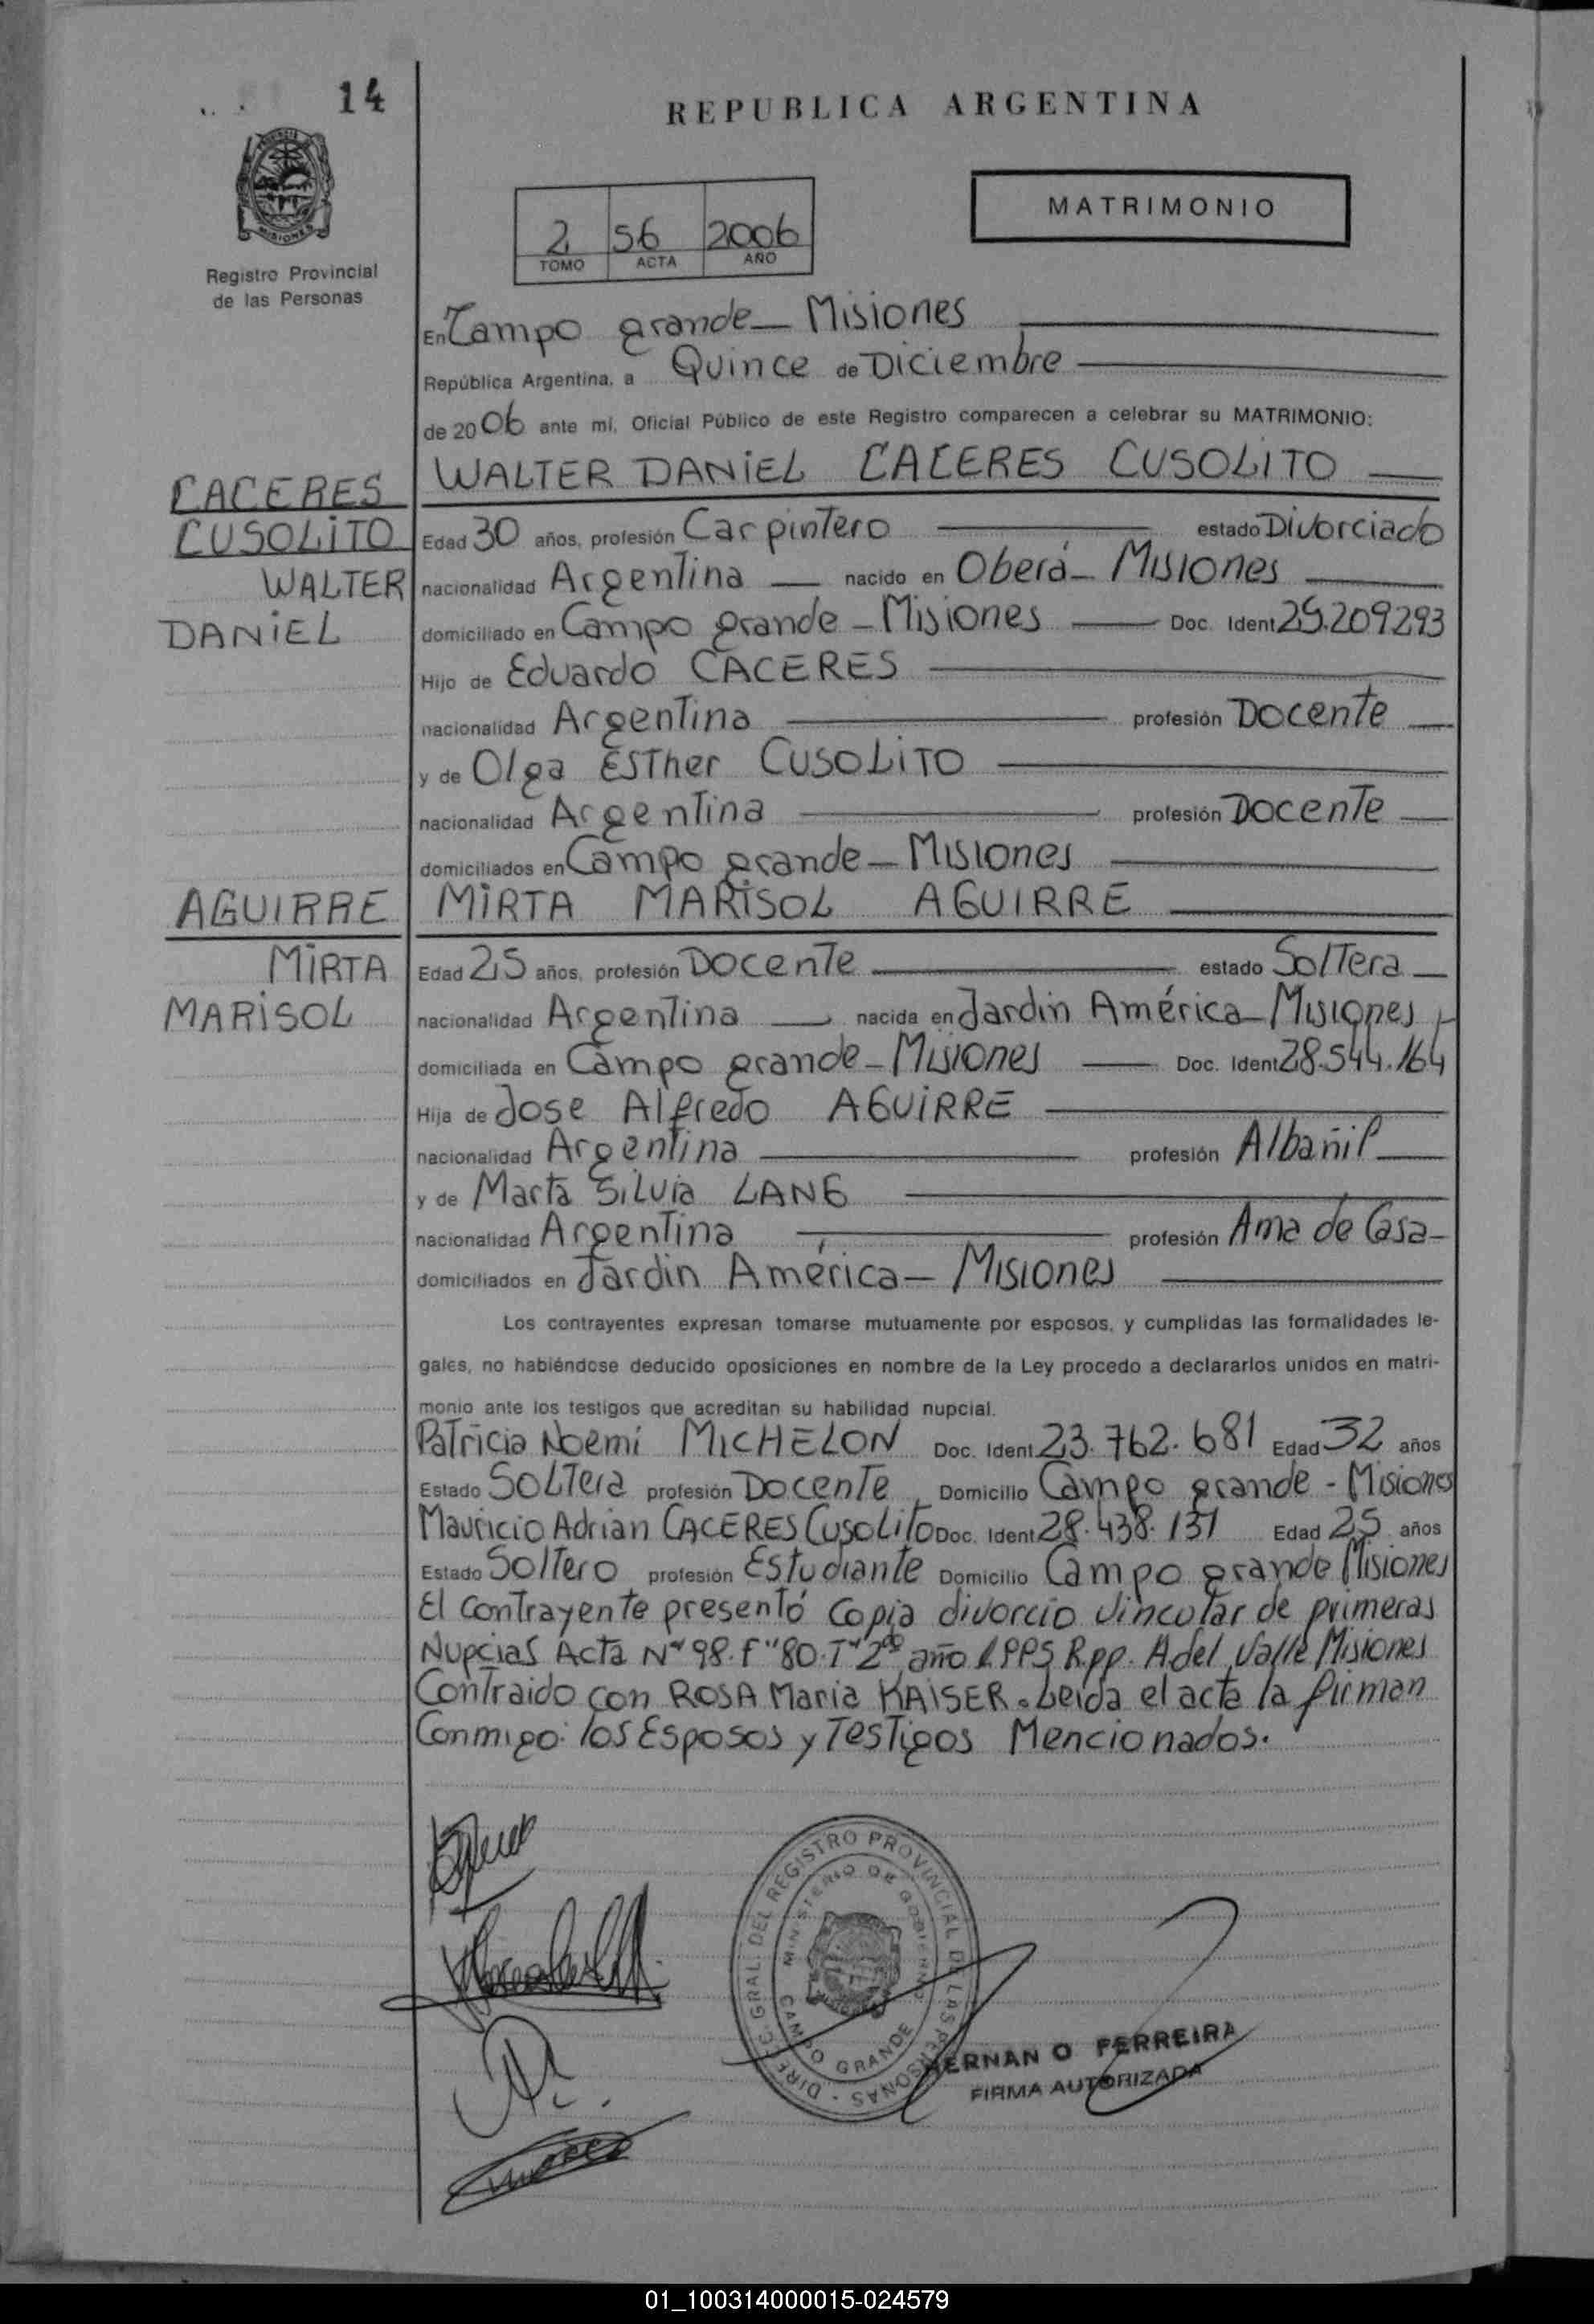 14
REPUBLICA ARGENTINA
MISIONES
Registro Provincial
de las Personas
2 56 2006
TOMO ACTA AÑO
MATRIMONIO
En Campo grande — Misiones
República Argentina, a Quince de Diciembre
de 2006 ante mí, Oficial Público de este Registro comparecen a celebrar su MATRIMONIO:
CACERES
CUSOLITO
WALTER
DANIEL
WALTER DANIEL CACERES CUSOLITO
Edad 30 años, profesión Carpintero estado Divorciado
nacionalidad Argentina — nacido en Oberá - Misiones
domiciliado en Campo grande - Misiones — Doc. Ident 25.209293
Hijo de Eduardo CACERES
nacionalidad Argentina profesión Docente
y de Olga Esther CUSOLITO
nacionalidad Argentina profesión Docente
domiciliados en Campo grande — Misiones
AGUIRRE
MIRTA
MARISOL
MIRTA MARISOL AGUIRRE
Edad 25 años, profesión Docente estado Soltera
nacionalidad Argentina — nacida en Jardin América - Misiones
domiciliada en Campo grande - Misiones — Doc. Ident 28.544.164
Hija de Jose Alfredo AGUIRRE
nacionalidad Argentina profesión Albañil
y de Marta Silvia LANG
nacionalidad Argentina profesión Ama de Casa
domiciliados en Jardin América — Misiones
Los contrayentes expresan tomarse mutuamente por esposos, y cumplidas las formalidades le-
gales, no habiéndose deducido oposiciones en nombre de la Ley procedo a declararlos unidos en matri-
monio ante los testigos que acreditan su habilidad nupcial.
Patricia Noemi MICHELON Doc. Ident. 23.762.681 Edad 32 años
Estado Soltera profesión Docente Domicilio Campo grande - Misiones
Mauricio Adrian CACERES Cusolito Doc. Ident 28.438.131 Edad 25 años
Estado Soltero profesión Estudiante Domicilio Campo grande Misiones
El contrayente presentó copia divorcio vincular de primeras
Nupcias Acta Nº 98. Fº 80. Tº 2º año 1995 R.pp. A del Valle Misiones
Contraido con ROSA Maria KAISER. Leida el acta la firman
Conmigo: los Esposos y Testigos Mencionados.
DIREC. GRAL. DEL REGISTRO PROVINCIAL DE LAS PERSONAS
MINISTERIO DE GOBIERNO
CAMPO GRANDE
HERNAN O FERREIRA
FIRMA AUTORIZADA
01_100314000015-024579